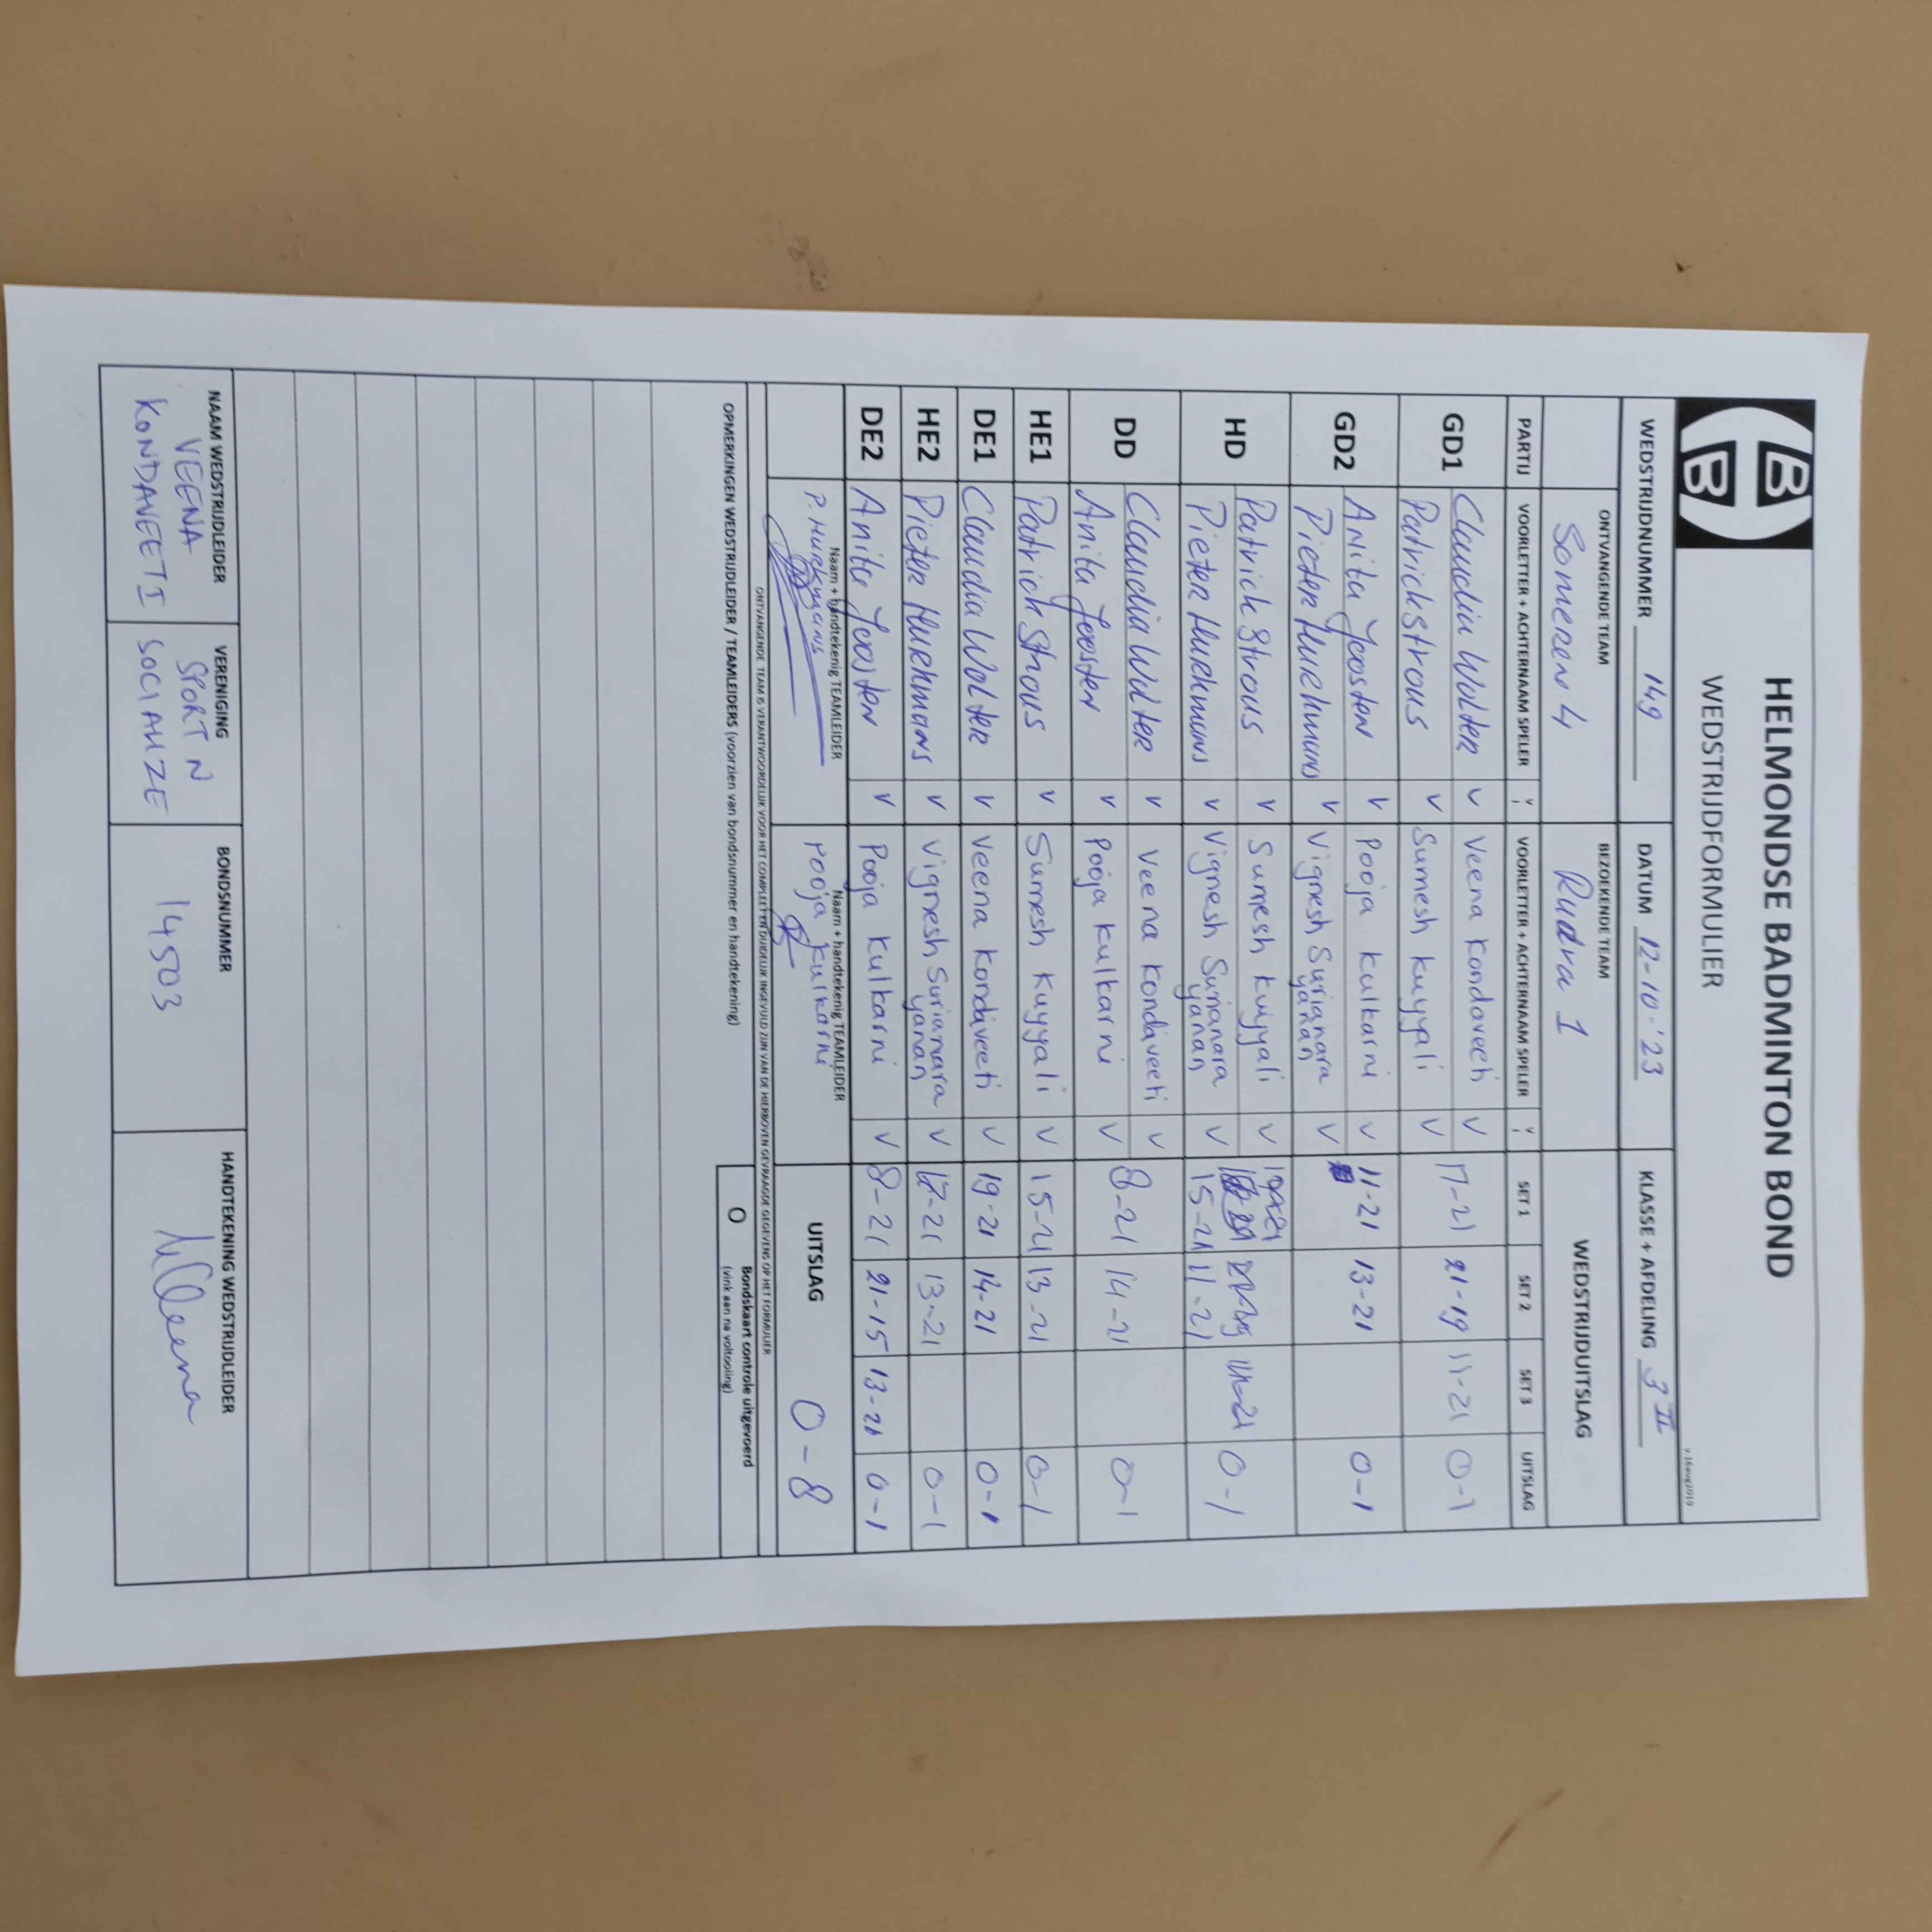 HELMONDSE BADMINTON BOND
WEDSTRIJDFORMULIER
v.16aug2019
WEDSTRIJDNUMMER 149 DATUM 12-10-'23 KLASSE + AFDELING 3 II
ONTVANGENDE TEAM BEZOEKENDE TEAM WEDSTRIJDUITSLAG
Someren 4 Rudra 1
PARTIJ VOORLETTER + ACHTERNAAM SPELER V VOORLETTER + ACHTERNAAM SPELER V SET 1 SET 2 SET 3 UITSLAG
GD1 Claudia Wolter V Veena Kondaveeti V 17-21 21-19 11-21 0-1
Patrick Strous V Sumesh Kuyyali V
GD2 Anita Joosten V Pooja Kulkarni V 11-21 13-21 0-1
Pieter Hurkmans V Vignesh Surianara
yanan V
HD Patrick Strous V Sumesh Kuyyali V
Pieter Hurkmans V Vignesh Surianara
yanan V 15-21 11-21 0-1
DD Claudia Wolter V Veena Kondaveeti V 8-21 14-21 0-1
Anita Joosten V Pooja Kulkarni V
HE1 Patrick Strous V Sumesh Kuyyali V 15-21 13-21 0-1
DE1 Claudia Wolter V Veena Kondaveeti V 19-21 14-21 0-1
HE2 Pieter Hurkmans V Vignesh Surianara
yanan V 12-21 13-21 0-1
DE2 Anita Joosten V Pooja Kulkarni V 8-21 21-15 13-21 0-1
Naam + handtekenig TEAMLEIDER Naam + handtekenig TEAMLEIDER
P. Hurkmans Pooja Kulkarni UITSLAG 0-8
ONTVANGENDE TEAM IS VERANTWOORDELIJK VOOR HET COMPLEET EN DUIDELIJK INGEVULD ZIJN VAN DE HIERBOVEN GEVRAAGDE GEGEVENS OP HET FORMULIER
OPMERKINGEN WEDSTRIJDLEIDER / TEAMLEIDERS (voorzien van bondsnummer en handtekening)
O Bondskaart controle uitgevoerd
(vink aan na voltooiing)
NAAM WEDSTRIJDLEIDER VERENIGING BONDSNUMMER HANDTEKENING WEDSTRIJDLEIDER
VEENA SPORT N 14503
KONDAVEETI SOCIALIZE